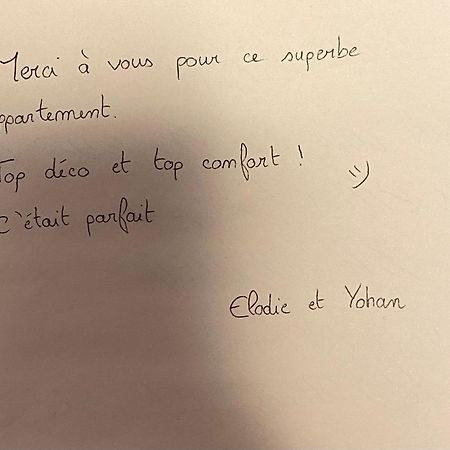 Merci à vous pour ce superbe
appartement.
Top déco et top comfort !
C'était parfait
Elodie et Yohan